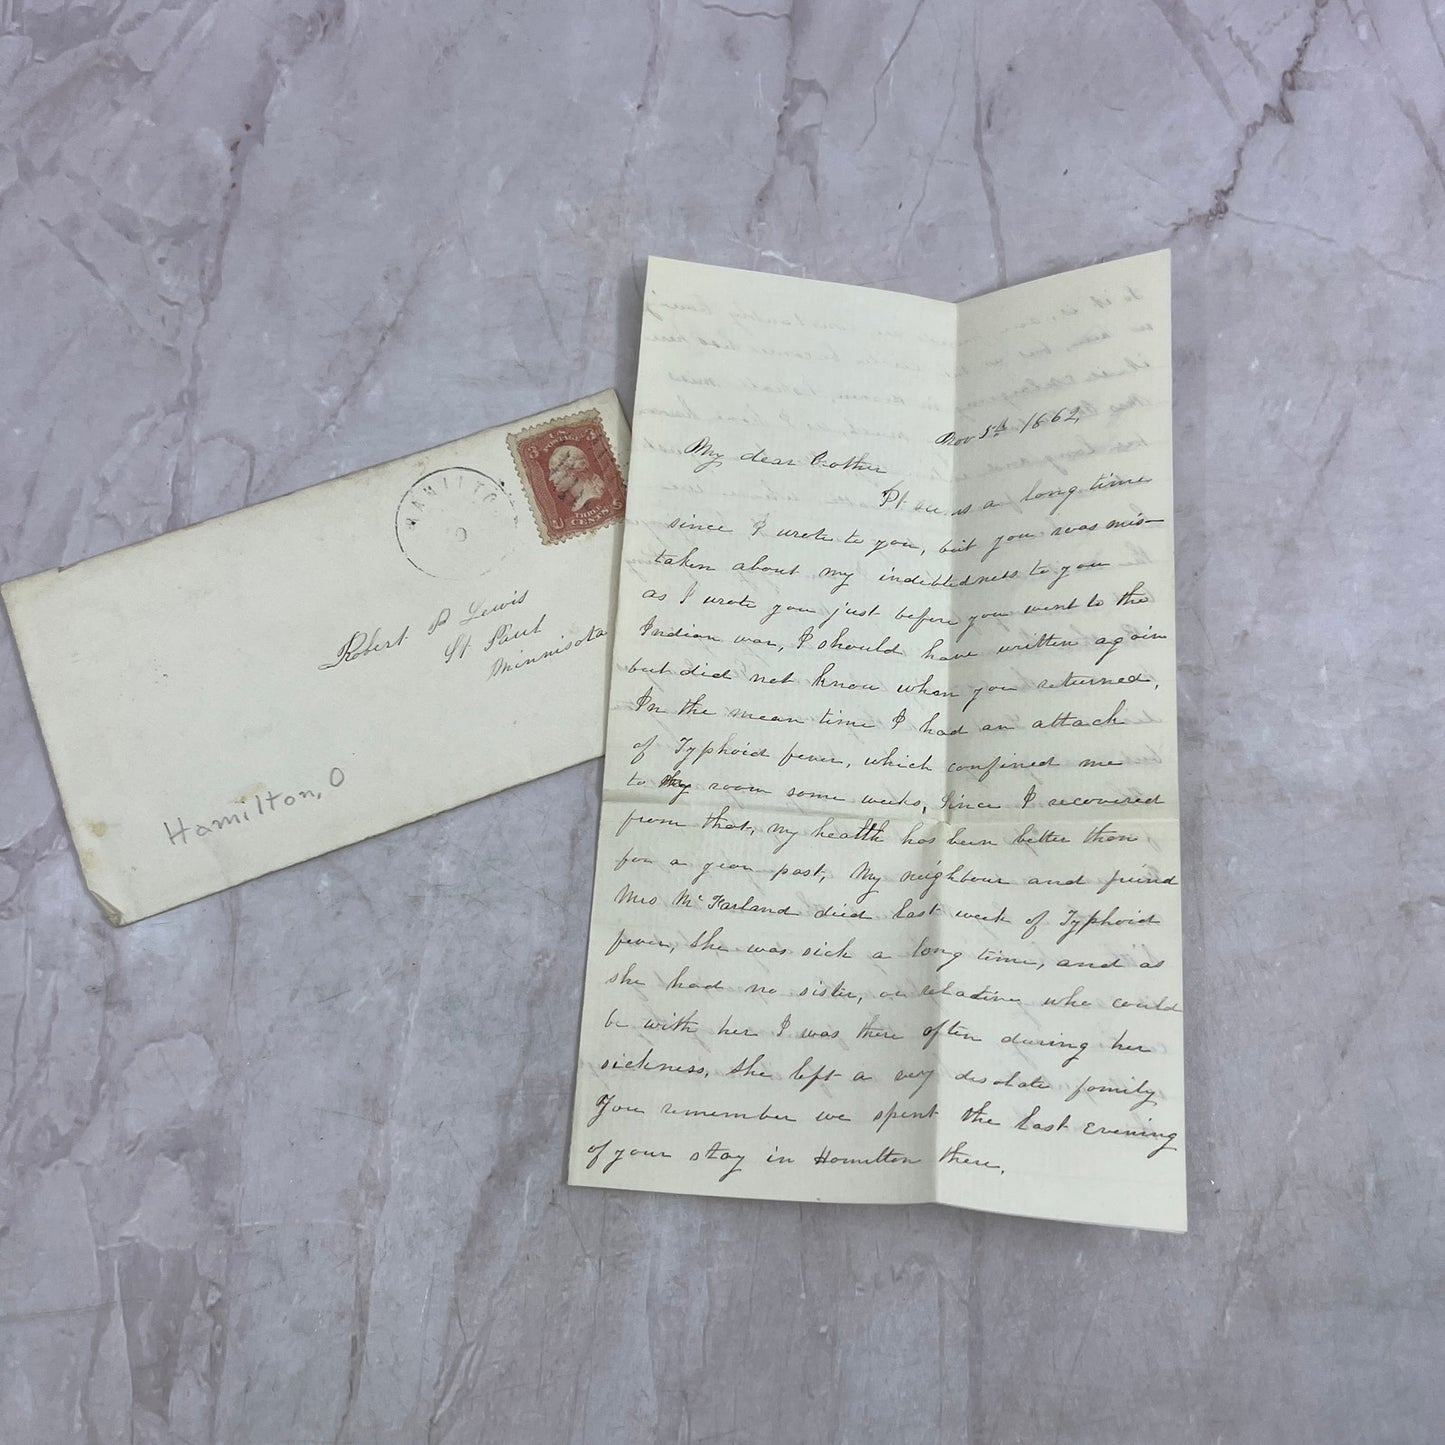 U.S. POSTAGE
3 3
THREE
CENTS
HAMILTO
Robert P Lewis
St Paul
Minnisota
Hamilton, O
Nov 5th 1862,
My dear Brother
It seems a long time
since I wrote to you, but you was mis-
taken about my indebtedness to you
as I wrote you just before you went to the
Indian war, I should have written again
but did not know when you returned,
In the mean time I had an attack
of Typhoid fever, which confined me
to my room some weeks, Since I recovered
from that, my health has been better than
for a year past, My neighbour and friend
Mrs McFarland died last week of Typhoid
fever, She was sick a long time, and as
she had no sister, or relative who could
be with her I was there often during her
sickness, She left a very desolate family
You remember we spent the last Evening
of your stay in Hamilton there,